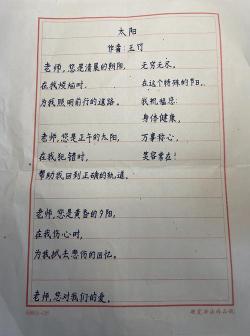 太阳
作者:王乃
老师,您是清晨的朝阳,
在我烦恼时,
为我照明前行的道路。
老师,您是正午的太阳,
在我犯错时,
帮助我回到正确的轨道。
老师,您是黄昏的夕阳,
在我伤心时,
为我拭去悲伤的回忆。
老师,您对我们的爱,
无穷无尽。
在这个特殊的节日,
我祝福您:
身体健康,
万事称心,
笑容常在!